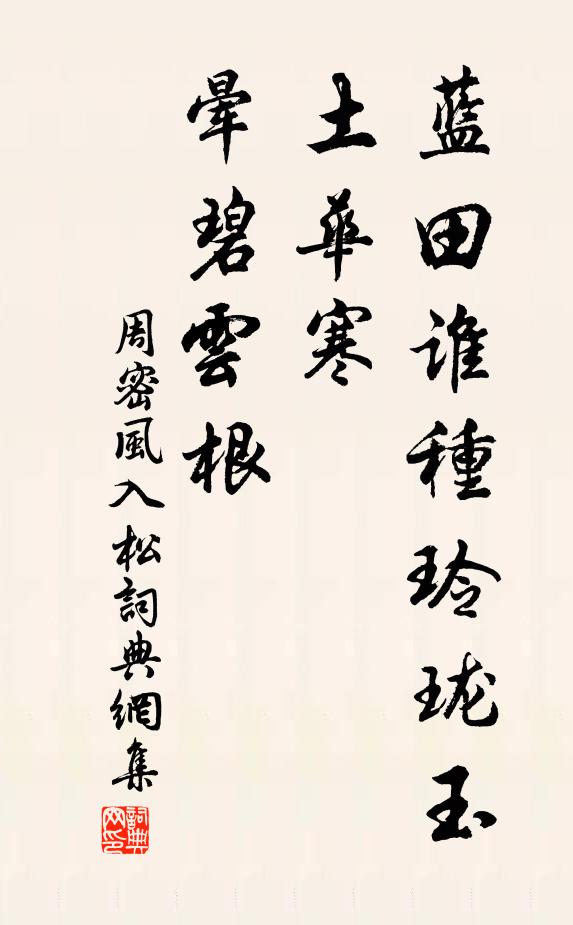 藍田誰種玲珑玉
土華寒
暈碧雲根
周密風入松詞典網集
詞典網印